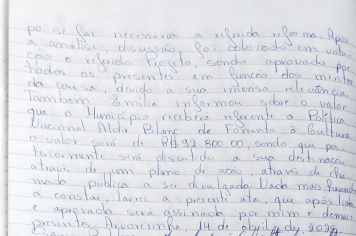 po se faz necessária a referida reforma. Após
a análise, discussão, foi colocado em vota-
ção o referido Projeto, sendo aprovado por
todos os presentes em função dos mérito
da causa, devido a sua imensa relevância.
Também, Emília informou sobre o valor
que o Município receberá referente a Política
Nacional Aldir Blanc de Fomento à Cultura
o valor será de R$ 92.800,00, sendo que pos-
teriormente será discutido a sua destinação
através de um plano de ação, através de cha-
mada pública a ser divulgada. Nada mais havendo
a constar, lavrei a presente ata, que após lida
e aprovada será assinada por mim e demais
presentes. 14 de de